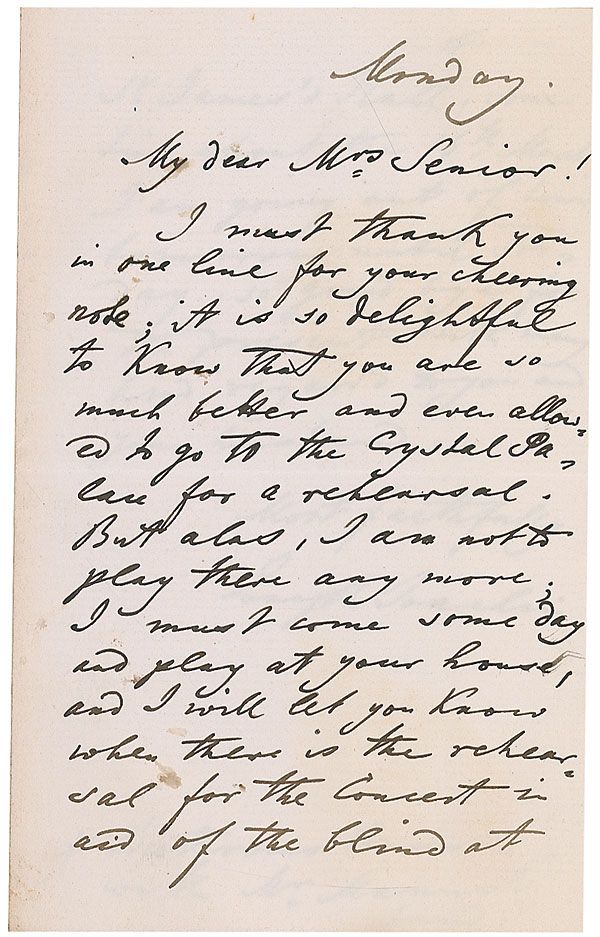 Monday.
My dear Mrs Senior!
I must thank you
in one line for your cheering
note; it is so delightful
to Know that you are so
much better and even allow=
ed to go to the Crystal Pa=
lace for a rehearsal.
But alas, I am not to
play there any more;
I must come some day
and play at your house,
and I will let you Know
when there is the rehear=
sal for the Concert in
aid of the blind at